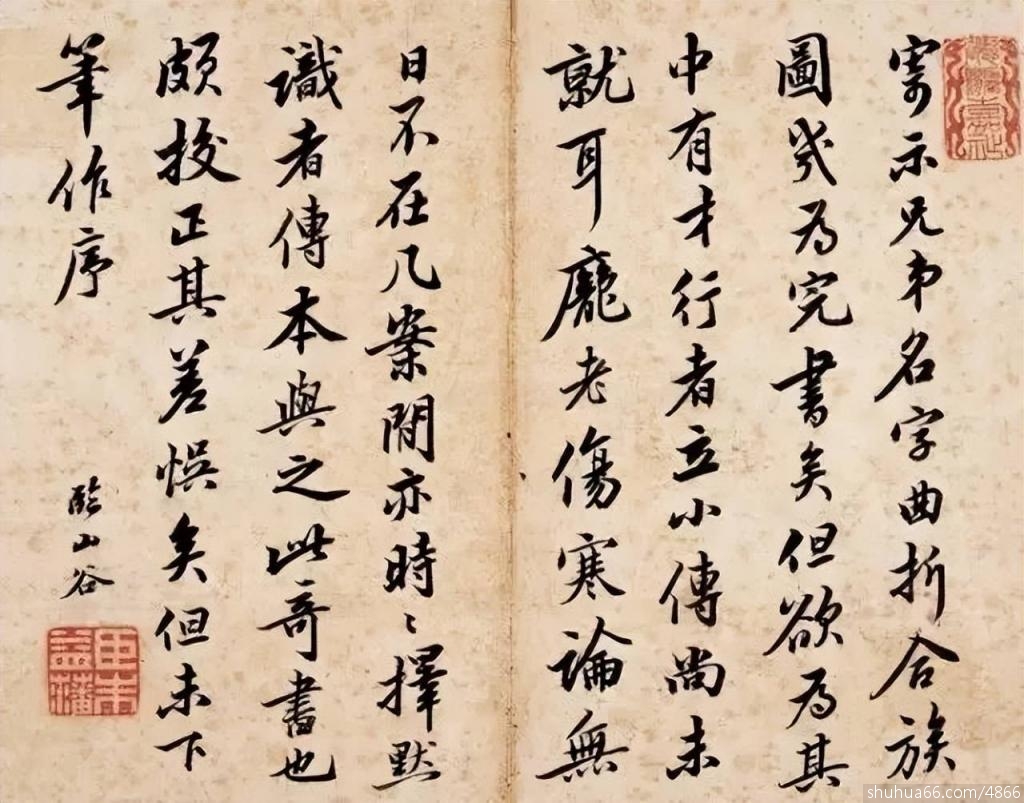 寄示兄弟名字曲折合族
圖幾為完書矣但欲為其
中有才行者立小傳尚未
就耳龐老傷寒論無
日不在几案間亦時〻擇默
識者傳本與之此奇書也
頗挍正其差悮矣但未下
筆作序
臨山谷
shuhua66.com/4866